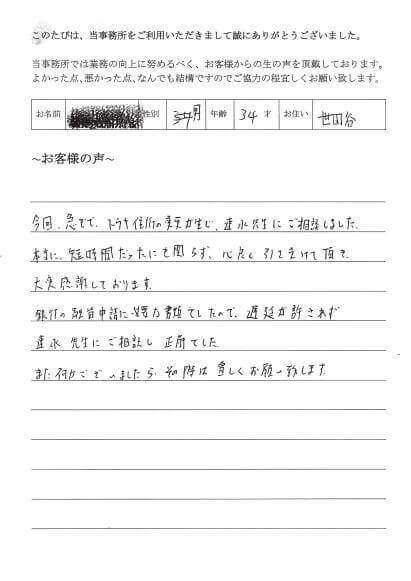 このたびは、当事務所をご利用いただきまして誠にありがとうございました。
当事務所では業務の向上に努めるべく、お客様からの生の声を頂戴しております。
よかった点、悪かった点、なんでも結構ですのでご協力の程宜しくお願い致します。
お名前 性別 男 年齢 34 才 お住い 世田谷
~お客様の声~
今回、急きで、トウキ住所の変更が生じ、速水先生にご相談しました。
本当に、短時間だったにも関らず、心良く引き受けて頂き、
大変感謝しております。
銀行の融資申請に必要な書類でしたので、遅延が許されず
速水先生にご相談し正解でした。
また何かございましたら、その際は宜しくお願い致します。